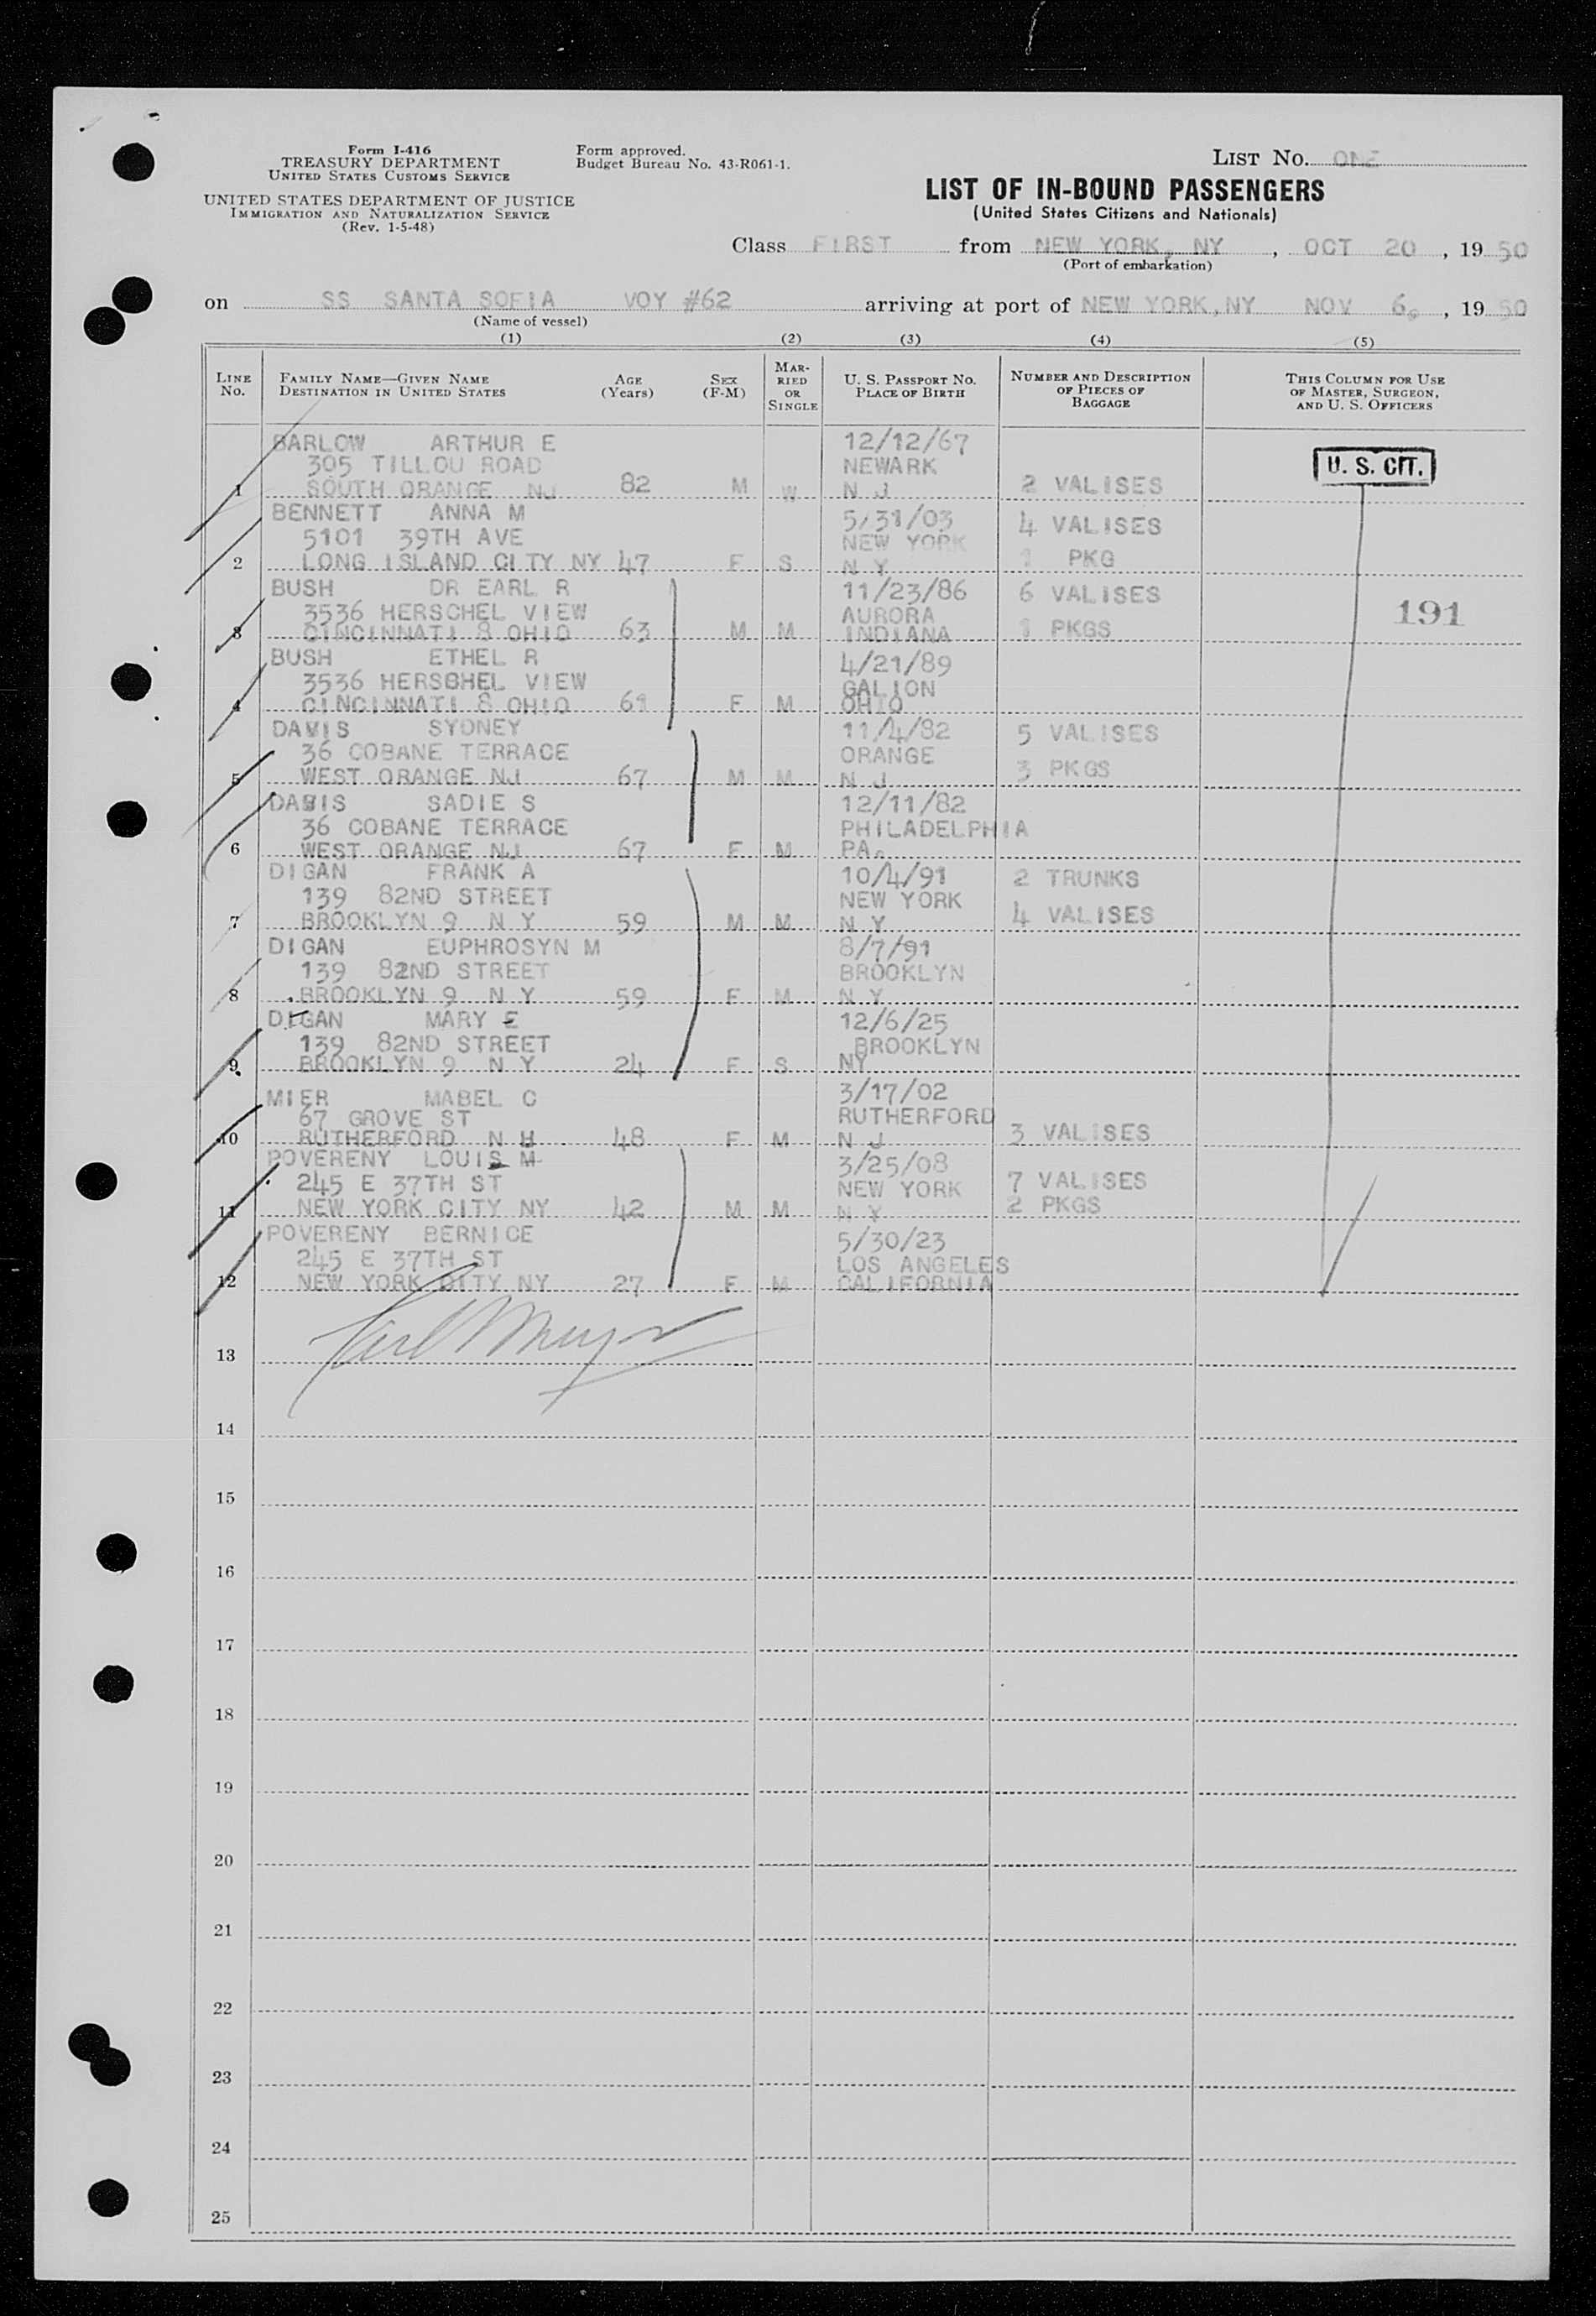 Form I-416
TREASURY DEPARTMENT
UNITED STATES CUSTOMS SERVICE
UNITED STATES DEPARTMENT OF JUSTICE
IMMIGRATION AND NATURALIZATION SERVICE
(Rev. 1-5-48)
Form approved.
Budget Bureau No. 43-R061-1.
LIST No. ONE
LIST OF IN-BOUND PASSENGERS
(United States Citizens and Nationals)
Class FIRST from NEW YORK, NY, OCT 20, 19 50
(Port of embarkation)
on SS SANTA SOFIA VOY #62 arriving at port of NEW YORK, NY NOV 6, 19 50
(Name of vessel)
(1) (2) (3) (4) (5)
LINE No.
FAMILY NAME—GIVEN NAME
DESTINATION IN UNITED STATES
AGE (Years)
SEX (F-M)
MARRIED OR SINGLE
U. S. PASSPORT No.
PLACE OF BIRTH
NUMBER AND DESCRIPTION OF PIECES OF BAGGAGE
THIS COLUMN FOR USE OF MASTER, SURGEON, AND U. S. OFFICERS
BARLOW ARTHUR E 12/12/67
305 TILLOU ROAD NEWARK U. S. CIT.
1 SOUTH ORANGE NJ 82 M W N J 2 VALISES
BENNETT ANNA M 5/31/03 4 VALISES
5101 39TH AVE NEW YORK
2 LONG ISLAND CITY NY 47 F S N Y 1 PKG
BUSH DR EARL R 11/23/86 6 VALISES
3536 HERSCHEL VIEW AURORA 191
3 CINCINNATI 8 OHIO 63 M M INDIANA 1 PKGS
BUSH ETHEL R 4/21/89
3536 HERSCHEL VIEW GALION
4 CINCINNATI 8 OHIO 61 F M OHIO
DAVIS SYDNEY 11/4/82 5 VALISES
36 COBANE TERRACE ORANGE
5 WEST ORANGE NJ 67 M M N J 3 PKGS
DAVIS SADIE S 12/11/82
36 COBANE TERRACE PHILADELPHIA
6 WEST ORANGE NJ 67 F M PA.
DIGAN FRANK A 10/4/91 2 TRUNKS
139 82ND STREET NEW YORK
7 BROOKLYN 9 N Y 59 M M N Y 4 VALISES
DIGAN EUPHROSYN M 8/7/91
139 82ND STREET BROOKLYN
8 BROOKLYN 9 N Y 59 F M N Y
DIGAN MARY E 12/6/25
139 82ND STREET BROOKLYN
9 BROOKLYN 9 N Y 24 F S NY
MIER MABEL C 3/17/02
67 GROVE ST RUTHERFORD
10 RUTHERFORD N H 48 F M N J 3 VALISES
POVERENY LOUIS M 3/25/08
245 E 37TH ST NEW YORK 7 VALISES
11 NEW YORK CITY NY 42 M M N Y 2 PKGS
POVERENY BERNICE 5/30/23
245 E 37TH ST LOS ANGELES
12 NEW YORK CITY NY 27 F M CALIFORNIA
13
14
15
16
17
18
19
20
21
22
23
24
25